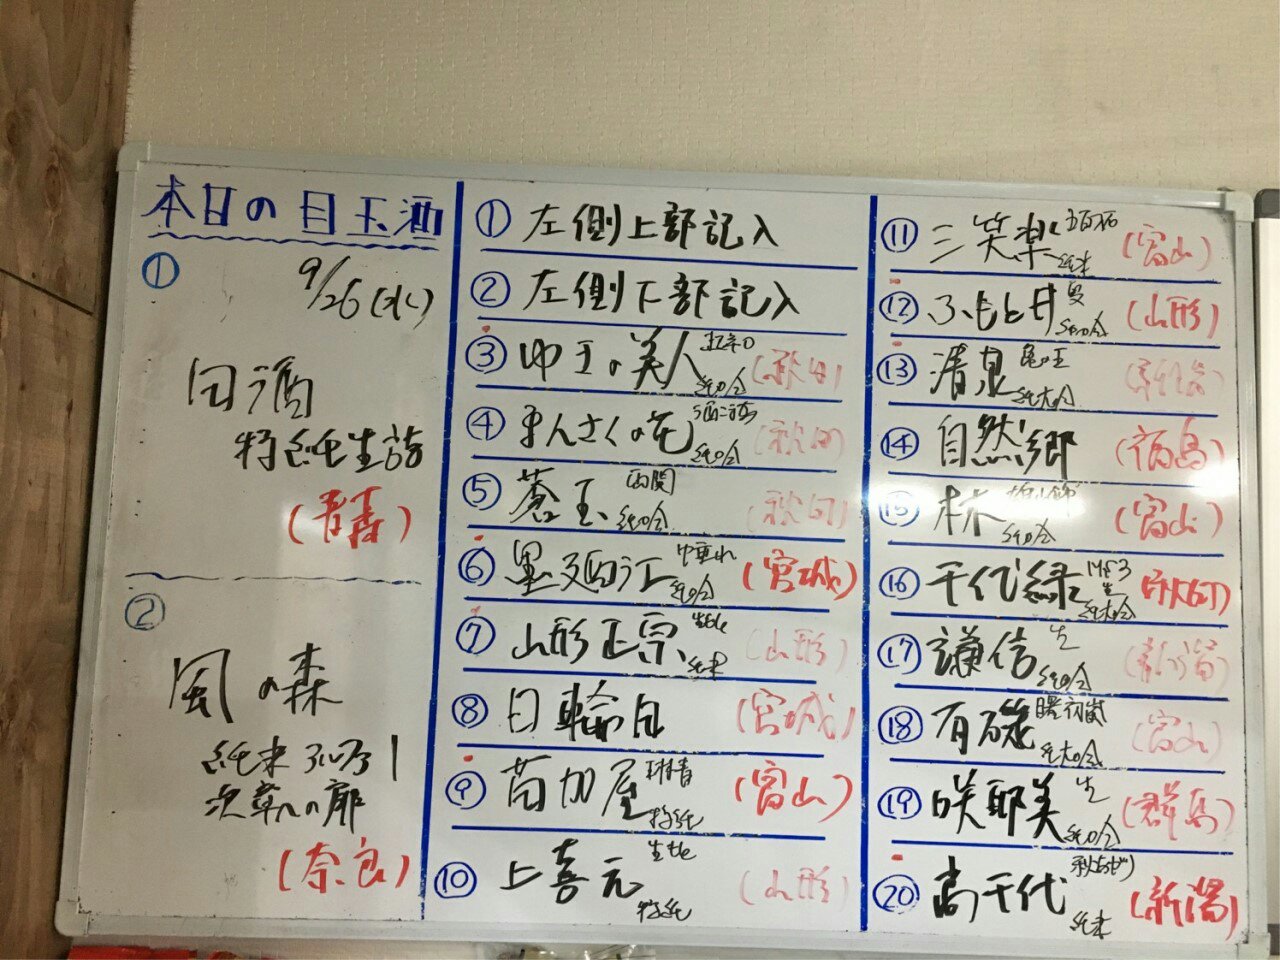 本日の目玉酒
①
9/26(水)
田酒
特純生詰
(青森)
②
風の森
純米
(奈良)
① 左側上部記入
② 左側下部記入
③ ゆきの美人 純吟 (秋田)
④ まんさくの花 純吟 (秋田)
⑤ 蒼玉 両関 純吟 (秋田)
⑥ 墨廼江 中垂れ 純吟 (宮城)
⑦ 山形正宗 純米 (山形)
⑧ 日輪田 (宮城)
⑨ 苗加屋 琳青 特純 (富山)
⑩ 上喜元 生もと 特純 (山形)
⑪ 三笑楽 五百石 純米 (富山)
⑫ ふもと井 純吟 (山形)
⑬ 清泉 亀の王 純大吟 (新潟)
⑭ 自然郷 (福島)
⑮ 林 純吟 (富山)
⑯ 千代緑 生 純大吟 (秋田)
⑰ 謙信 生 純吟 (新潟)
⑱ 有磯 曙 初嵐 純大吟 (富山)
⑲ 咲耶美 生 純吟 (群馬)
⑳ 高千代 純米 (新潟)